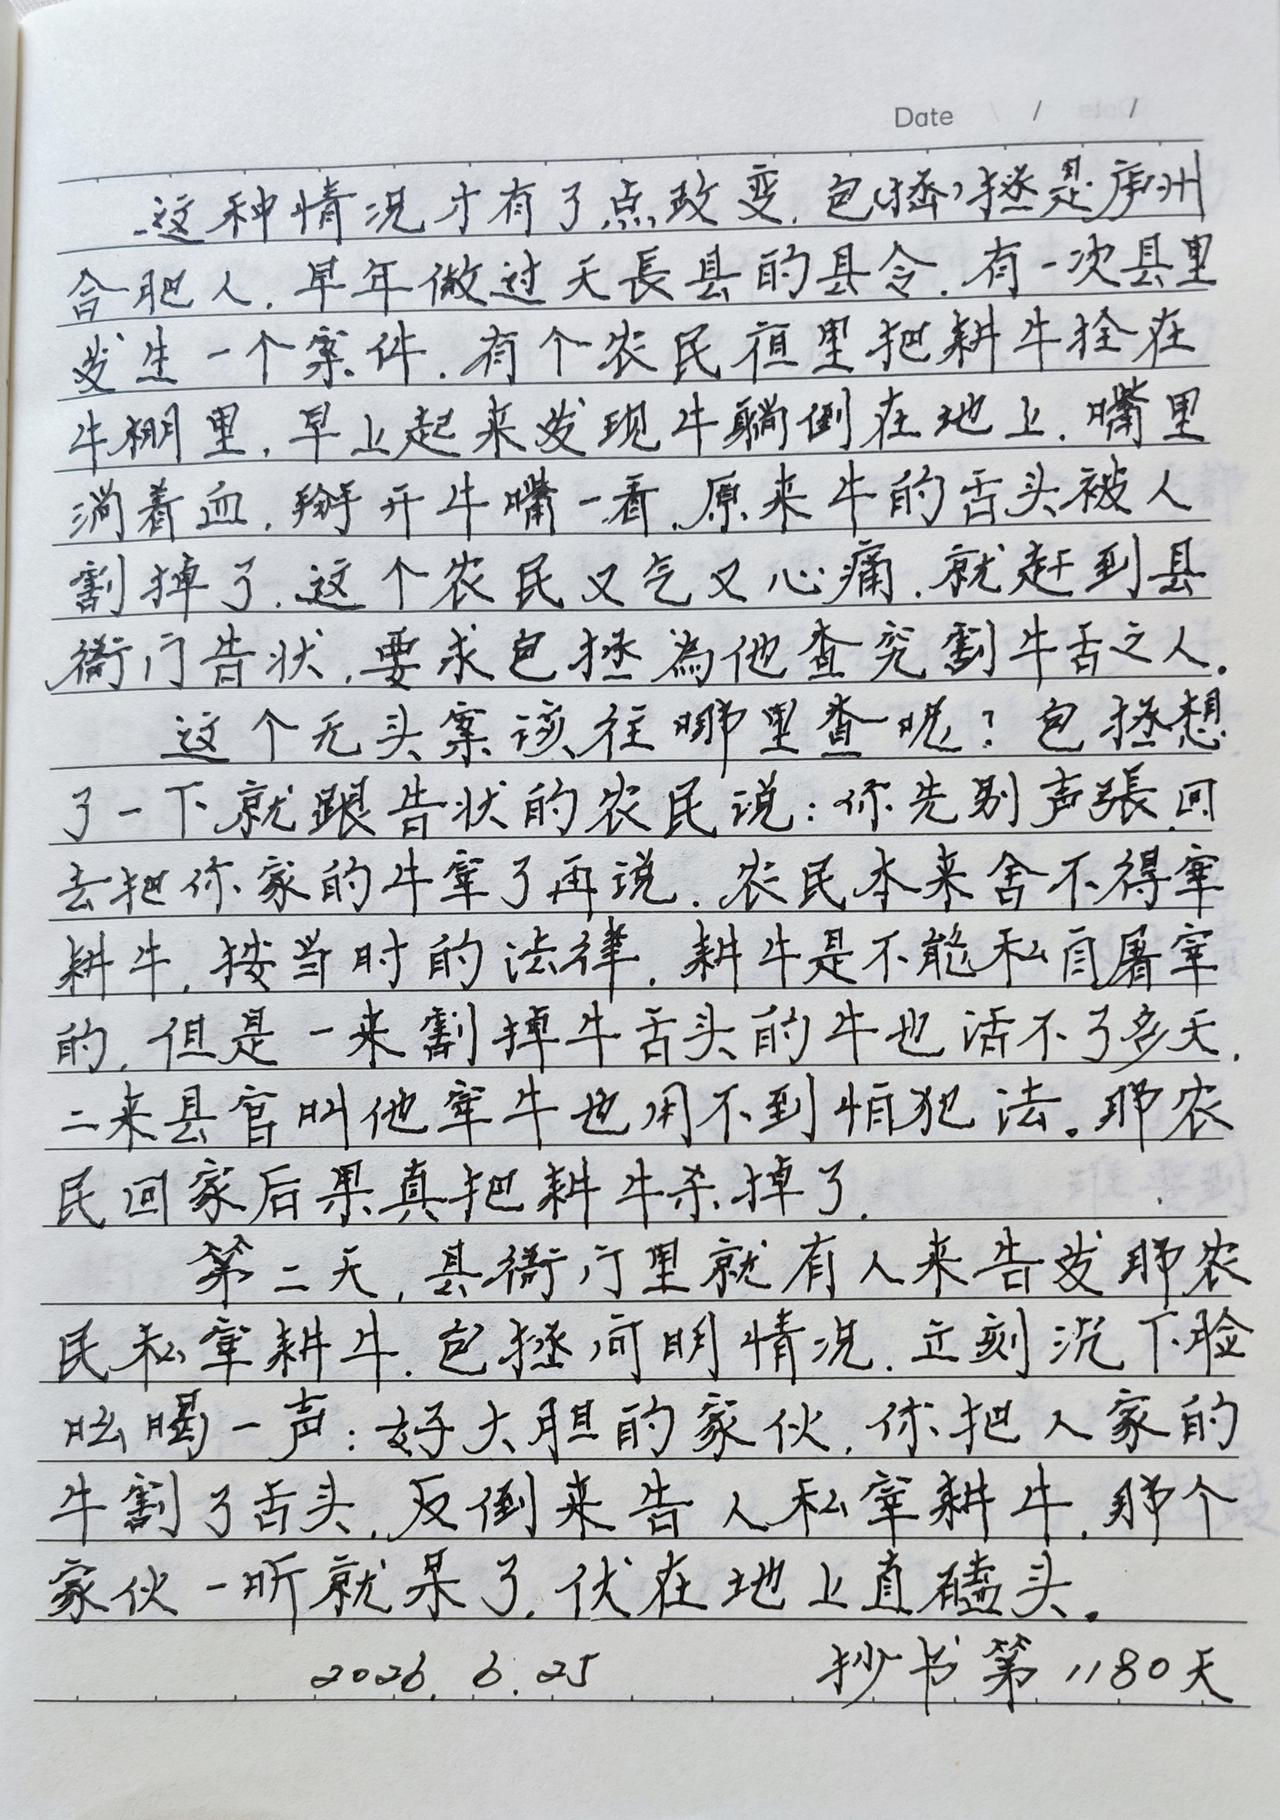 Date / /
这种情况才有了点改变.包(拯)拯是庐州
合肥人.早年做过天長县的县令.有一次县里
发生一个案件.有个农民夜里把耕牛拴在
牛棚里,早上起来发现牛躺倒在地上.嘴里
淌着血,掰开牛嘴一看.原来牛的舌头被人
割掉了.这个农民又气又心痛.就赶到县
衙门告状.要求包拯為他查究割牛舌之人。
这个无头案该往哪里查呢?包拯想
了一下就跟告状的农民说:你先别声張.回
去把你家的牛宰了再说.农民本来舍不得宰
耕牛,按当时的法律.耕牛是不能私自屠宰
的.但是一来割掉牛舌头的牛也活不了多天.
二来县官叫他宰牛也用不到怕犯法。那农
民回家后果真把耕牛杀掉了.
第二天,县衙门里就有人来告发那农
民私宰耕牛.包拯问明情况.立刻沉下脸
吆喝一声:好大胆的家伙.你把人家的
牛割了舌头,反倒来告人私宰耕牛.那个
家伙一听就呆了.伏在地上直磕头。
2026.6.25 抄书第1180天